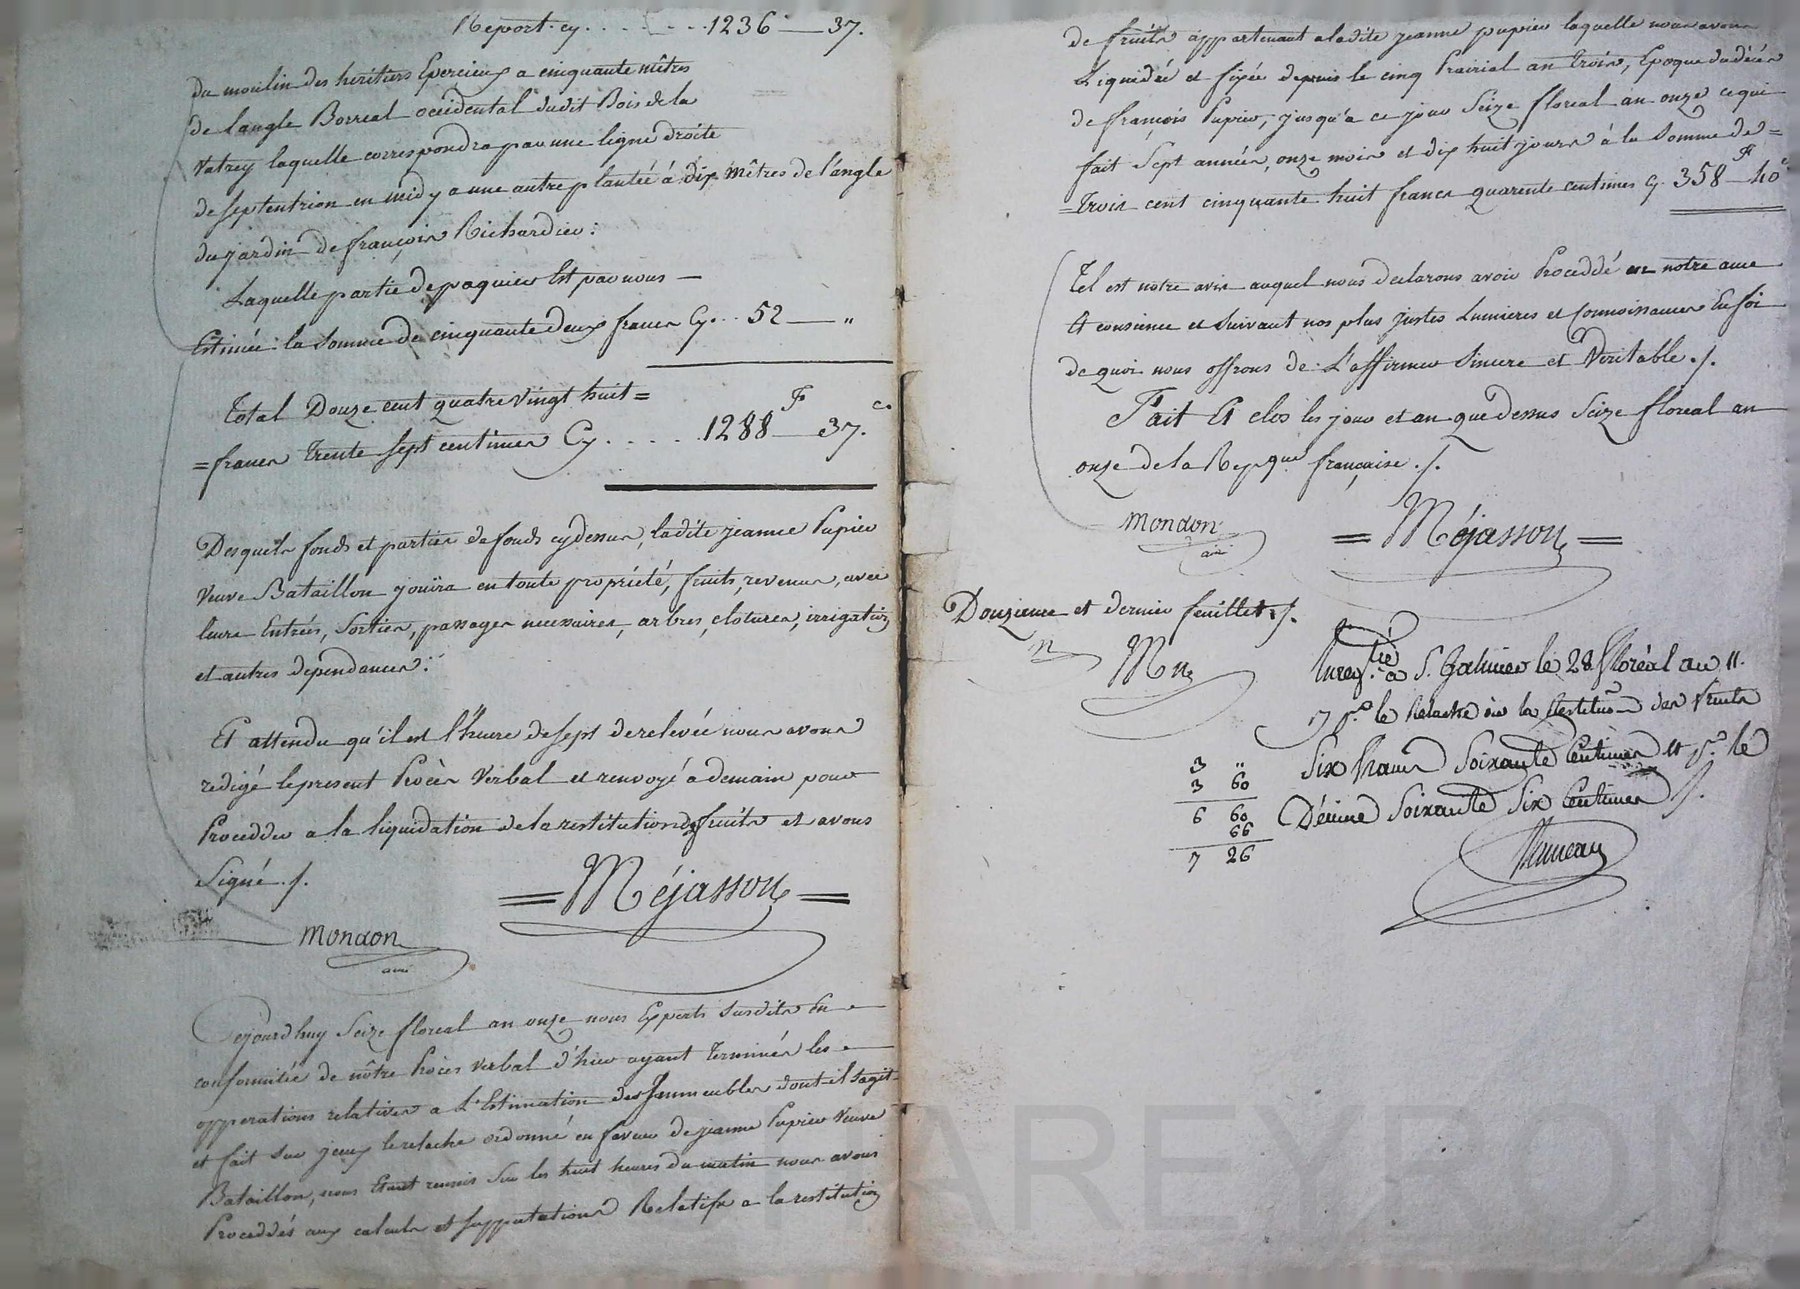 Report cy . . . . . . . 1236 — 37.
du moulin des héritiers Epercieux a cinquante mêtres
de l'angle Borreal occidental dudit Bois de la
Vatrey laquelle correspondra par une ligne droite
de septentrion en midy a une autre plantée à dix mêtres de l'angle
du jardin de françois Richardier :
Laquelle partie de paquier Est par nous —
Estimée la Somme de cinquante deux francs Cy . . 52 — "
Total Douze cent quatre vingt huit =
= francs Trente sept centimes Cy . . . . . 1288 F — 37 c.
Desquels fonds et parties de fonds cydessus, ladite jeanne Pupier
Veuve Bataillon jouira en toute propriété, fruits, revenus, avec
leurs Entrées, Sorties, passages necessaires, arbres, clotures, irrigation
et autres dependances :
Et attendu qu'il est l'heure de sept de relevée nous avons
redigé le present Procès Verbal et renvoyé a demain pour
Proceddér a la liquidation de la restitution de fruits et avons
Signé ./.
= Méjasson =
mondon
ainé
Cejourd'huy Seize floreal an onze nous Experts susdits En
conformité de nôtre Procès verbal d'hier ayant Terminés les
opperations relatives a L'Estimation des Jmmeubles dont il s'agit
et fait sur jceux le relache ordonné en faveur de jeanne Pupier Veuve
Bataillon, nous Etant reunis Sur les huit heures du matin nous avons
Proceddés aux calculs et supputations Relatifs a la restitution
de fruits appartenant a ladite jeanne pupier laquelle nous avons
Liquidée et fixée depuis le cinq Prairial an trois, Epoque du décès
de françois Pupier, jusqu'à ce jour Seize floreal an onze ce qui
fait Sept années, onze mois et dix huit jours à la Somme de =
= Trois cent cinquante huit francs quarente centimes Cy. 358 F — 40 c
Tel est notre avis auquel nous declarons avoir Proceddé en notre ame
Et consience et Suivant nos plus justes Lumieres et connoissances En foi
de quoi nous offrons de L'affirmer Sincere et Veritable ./.
Fait Et clos les jour et an que dessus Seize floreal an
onze de la Repque française ./.
mondon
ainé
= Méjasson =
Douzieme et dernier feuillet ./.
M
Mn
Enregtré à St. Galmier le 28 floréal an 11.
17 pr. le Relache ou la Restituon des fruits
Six francs Soixante Centimes et pr. le
Décime Soixante Six Centimes ./.
3 "
3 60
6 60
66
7 26
CHAREYRON